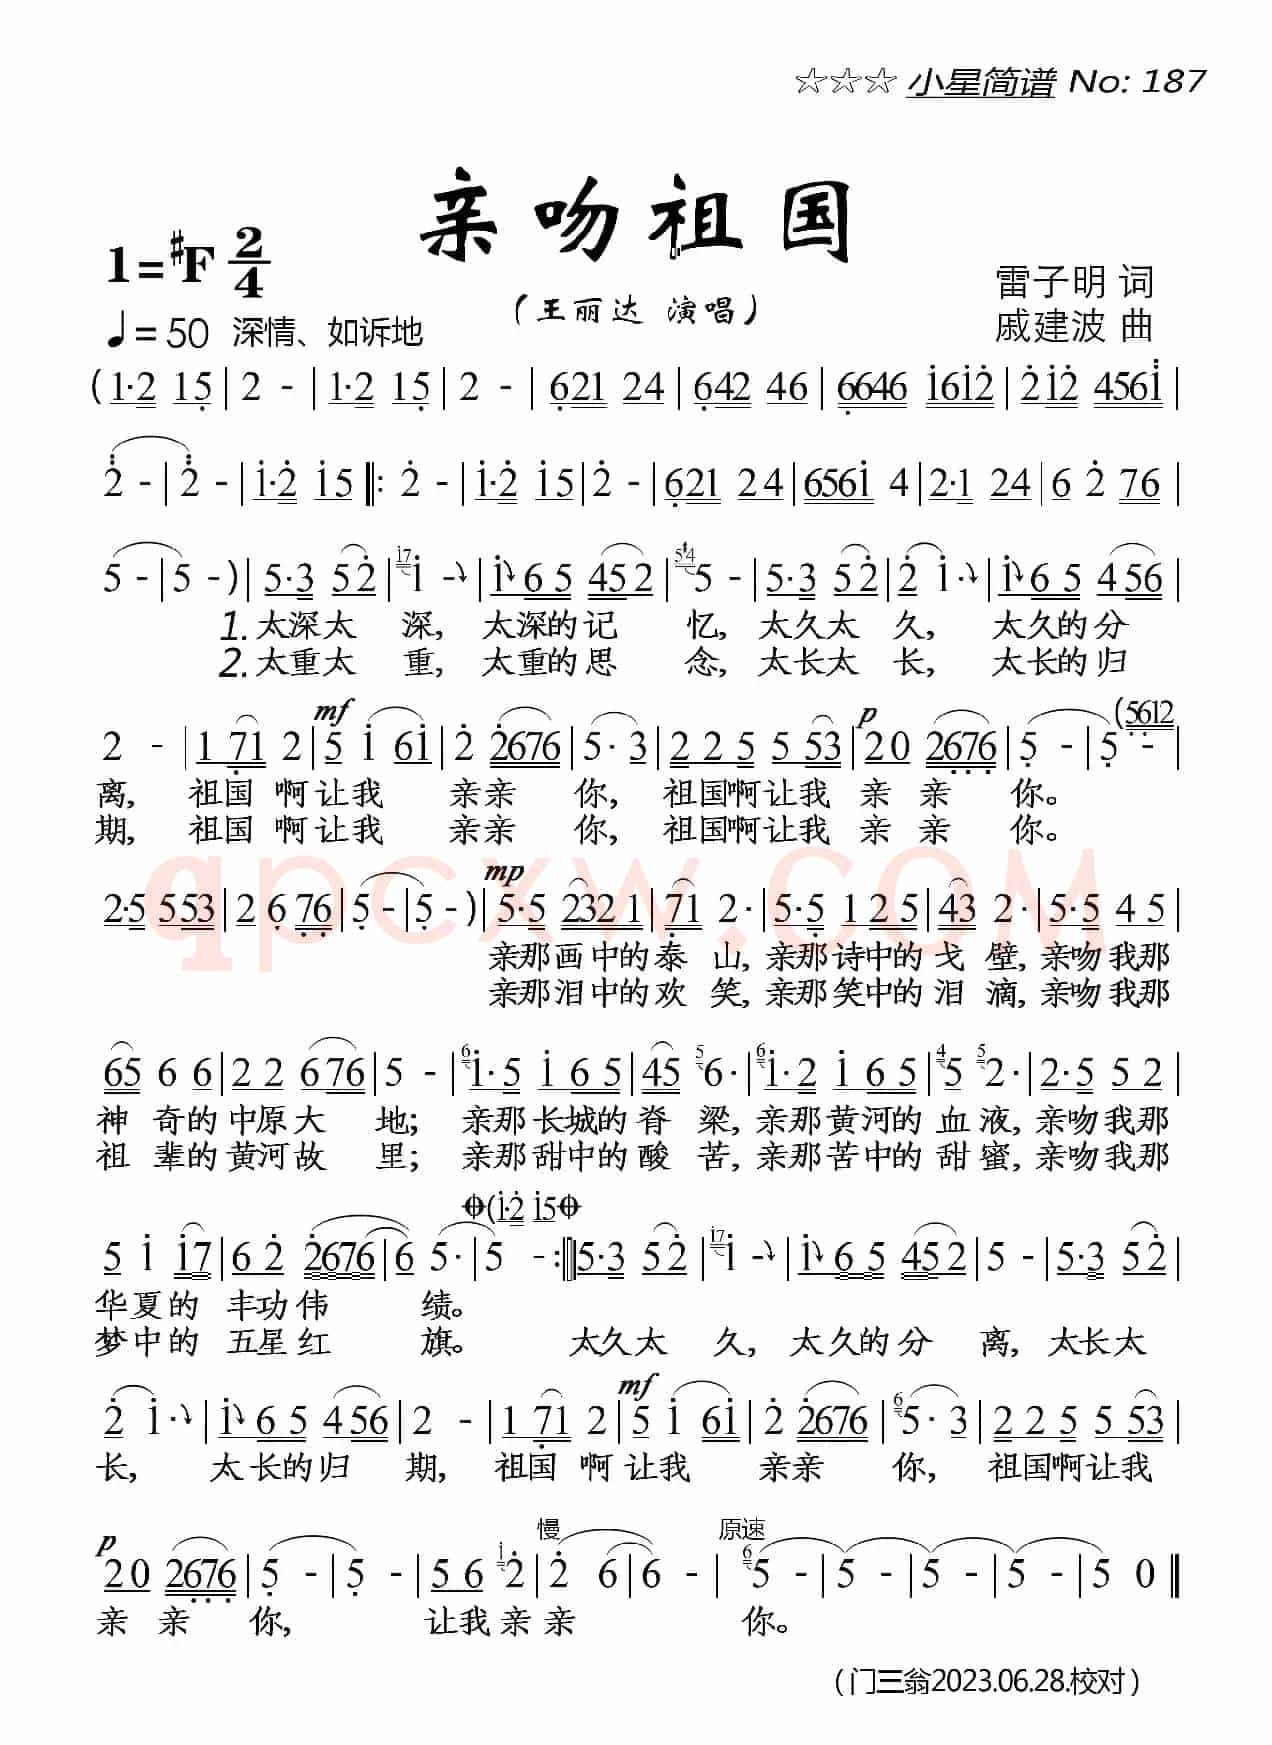 ☆☆☆ 小星简谱 No: 187
亲吻祖国
1=♯F 2/4
(王丽达 演唱)
雷子明 词
♩=50 深情、如诉地
戚建波 曲
(1·2 15 | 2 - | 1·2 15 | 2 - | 621 24 | 642 46 | 6646 1612 | 212 4561 |
2 - | 2 - | 1·2 15 ‖: 2 - | 1·2 15 | 2 - | 621 24 | 6561 4 | 2·1 24 | 6 2 76 |
5 - | 5 - ) | 5·3 52 | 17 1 - | 1 65 452 | 54 5 - | 5·3 52 | 2 1· | 1 65 456 |
1. 太深太 深, 太深的记 忆, 太久太 久, 太久的分
2. 太重太 重, 太重的思 念, 太长太 长, 太长的归
mf p (5612
2 - | 1 71 2 | 5 1 61 | 2 2676 | 5· 3 | 2 2 5 5 53 | 20 2676 | 5 - | 5 - |
离, 祖国 啊让我 亲亲 你, 祖国啊让我 亲 亲 你。
期, 祖国 啊让我 亲亲 你, 祖国啊让我 亲 亲 你。
qpcxw.COM
mp
2·5 553 | 2 6 76 | 5 - | 5 - ) | 5·5 2321 | 71 2· | 5·5 125 | 43 2· | 5·5 45 |
亲那画中的泰 山, 亲那诗中的戈 壁, 亲吻我那
亲那泪中的欢 笑, 亲那笑中的泪 滴, 亲吻我那
65 6 6 | 2 2 676 | 5 - | 6 1·5 165 | 45 5 6· | 6 1·2 165 | 4 5 5 2· | 2·5 52 |
神 奇的中原大 地; 亲那长城的脊 梁, 亲那黄河的 血 液, 亲吻我那
祖 辈的黄河故 里; 亲那甜中的酸 苦, 亲那苦中的 甜 蜜, 亲吻我那
(1·2 15
5 1 17 | 6 2 2676 | 6 5· | 5 - :‖ 5·3 52 | 17 1 - | 1 65 452 | 5 - | 5·3 52 |
华夏的 丰功伟 绩。
梦中的 五星红 旗。 太久太 久, 太久的分 离, 太长太
mf
2 1· | 1 65 456 | 2 - | 1 71 2 | 5 1 61 | 2 2676 | 6 5· 3 | 2 2 5 5 53 |
长, 太长的归 期, 祖国 啊让我 亲亲 你, 祖国啊让我
p 慢 原速
20 2676 | 5 - | 5 - | 5 6 1 2 | 2 6 | 6 - | 6 5 - | 5 - | 5 - | 5 - | 5 0 ‖
亲 亲 你, 让我亲亲 你。
(门三翁2023.06.28.校对)